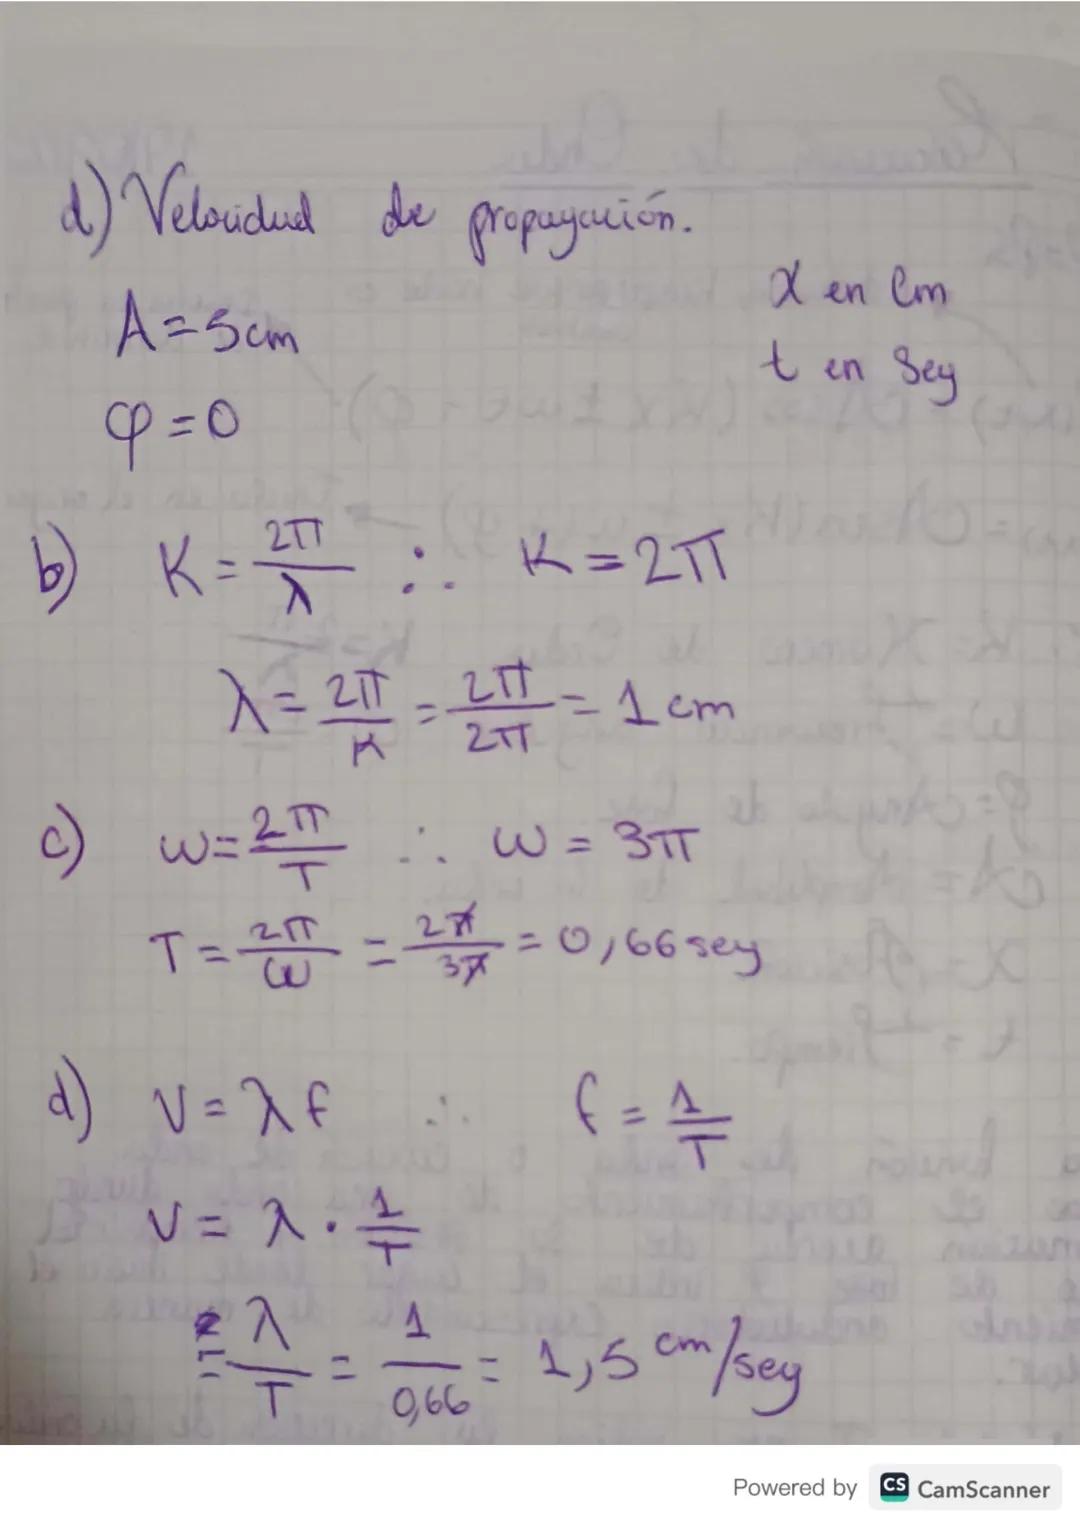 d) Velocidad de propagación.
x en cm
A = 5cm
t en Seg
φ = 0
b) K = 2π/λ ∴ K = 2π
λ = 2π/K = 2π/2π = 1 cm
c) w = 2π/T ∴ w = 3π
T = 2π/w = 2π/3π = 0,66 seg
d) V = λf ∴ f = 1/T
V = λ · 1/T
= λ/T = 1/0,66 = 1,5 cm/seg
Powered by CS CamScanner